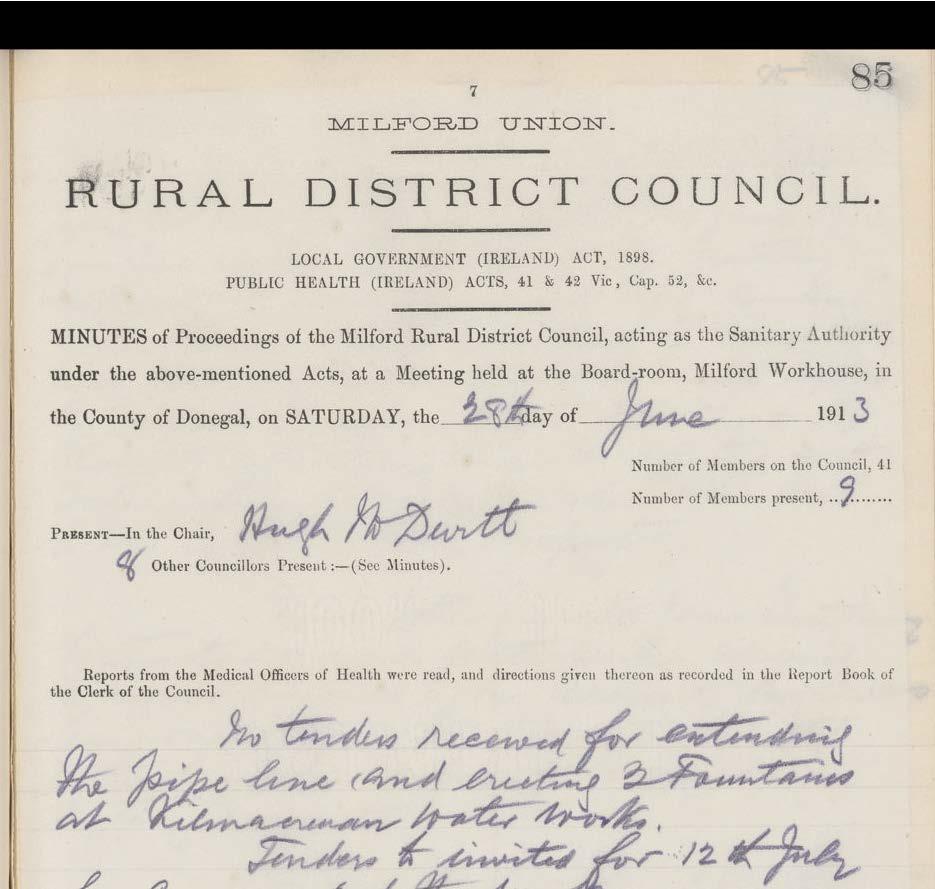 85
7
MILFORD UNION.
RURAL DISTRICT COUNCIL.
LOCAL GOVERNMENT (IRELAND) ACT, 1898.
PUBLIC HEALTH (IRELAND) ACTS, 41 & 42 Vic, Cap. 52, &c.
MINUTES of Proceedings of the Milford Rural District Council, acting as the Sanitary Authority
under the above-mentioned Acts, at a Meeting held at the Board-room, Milford Workhouse, in
the County of Donegal, on SATURDAY, the 28th day of June 1913
Number of Members on the Council, 41
Number of Members present, ..9........
PRESENT—In the Chair, Hugh McDevitt
8 Other Councillors Present :—(See Minutes).
Reports from the Medical Officers of Health were read, and directions given thereon as recorded in the Report Book of
the Clerk of the Council.
No tenders received for extending
the pipe line and erecting 3 Fountains
at Kilmacrenan Water Works.
Tenders to invited for 12th July